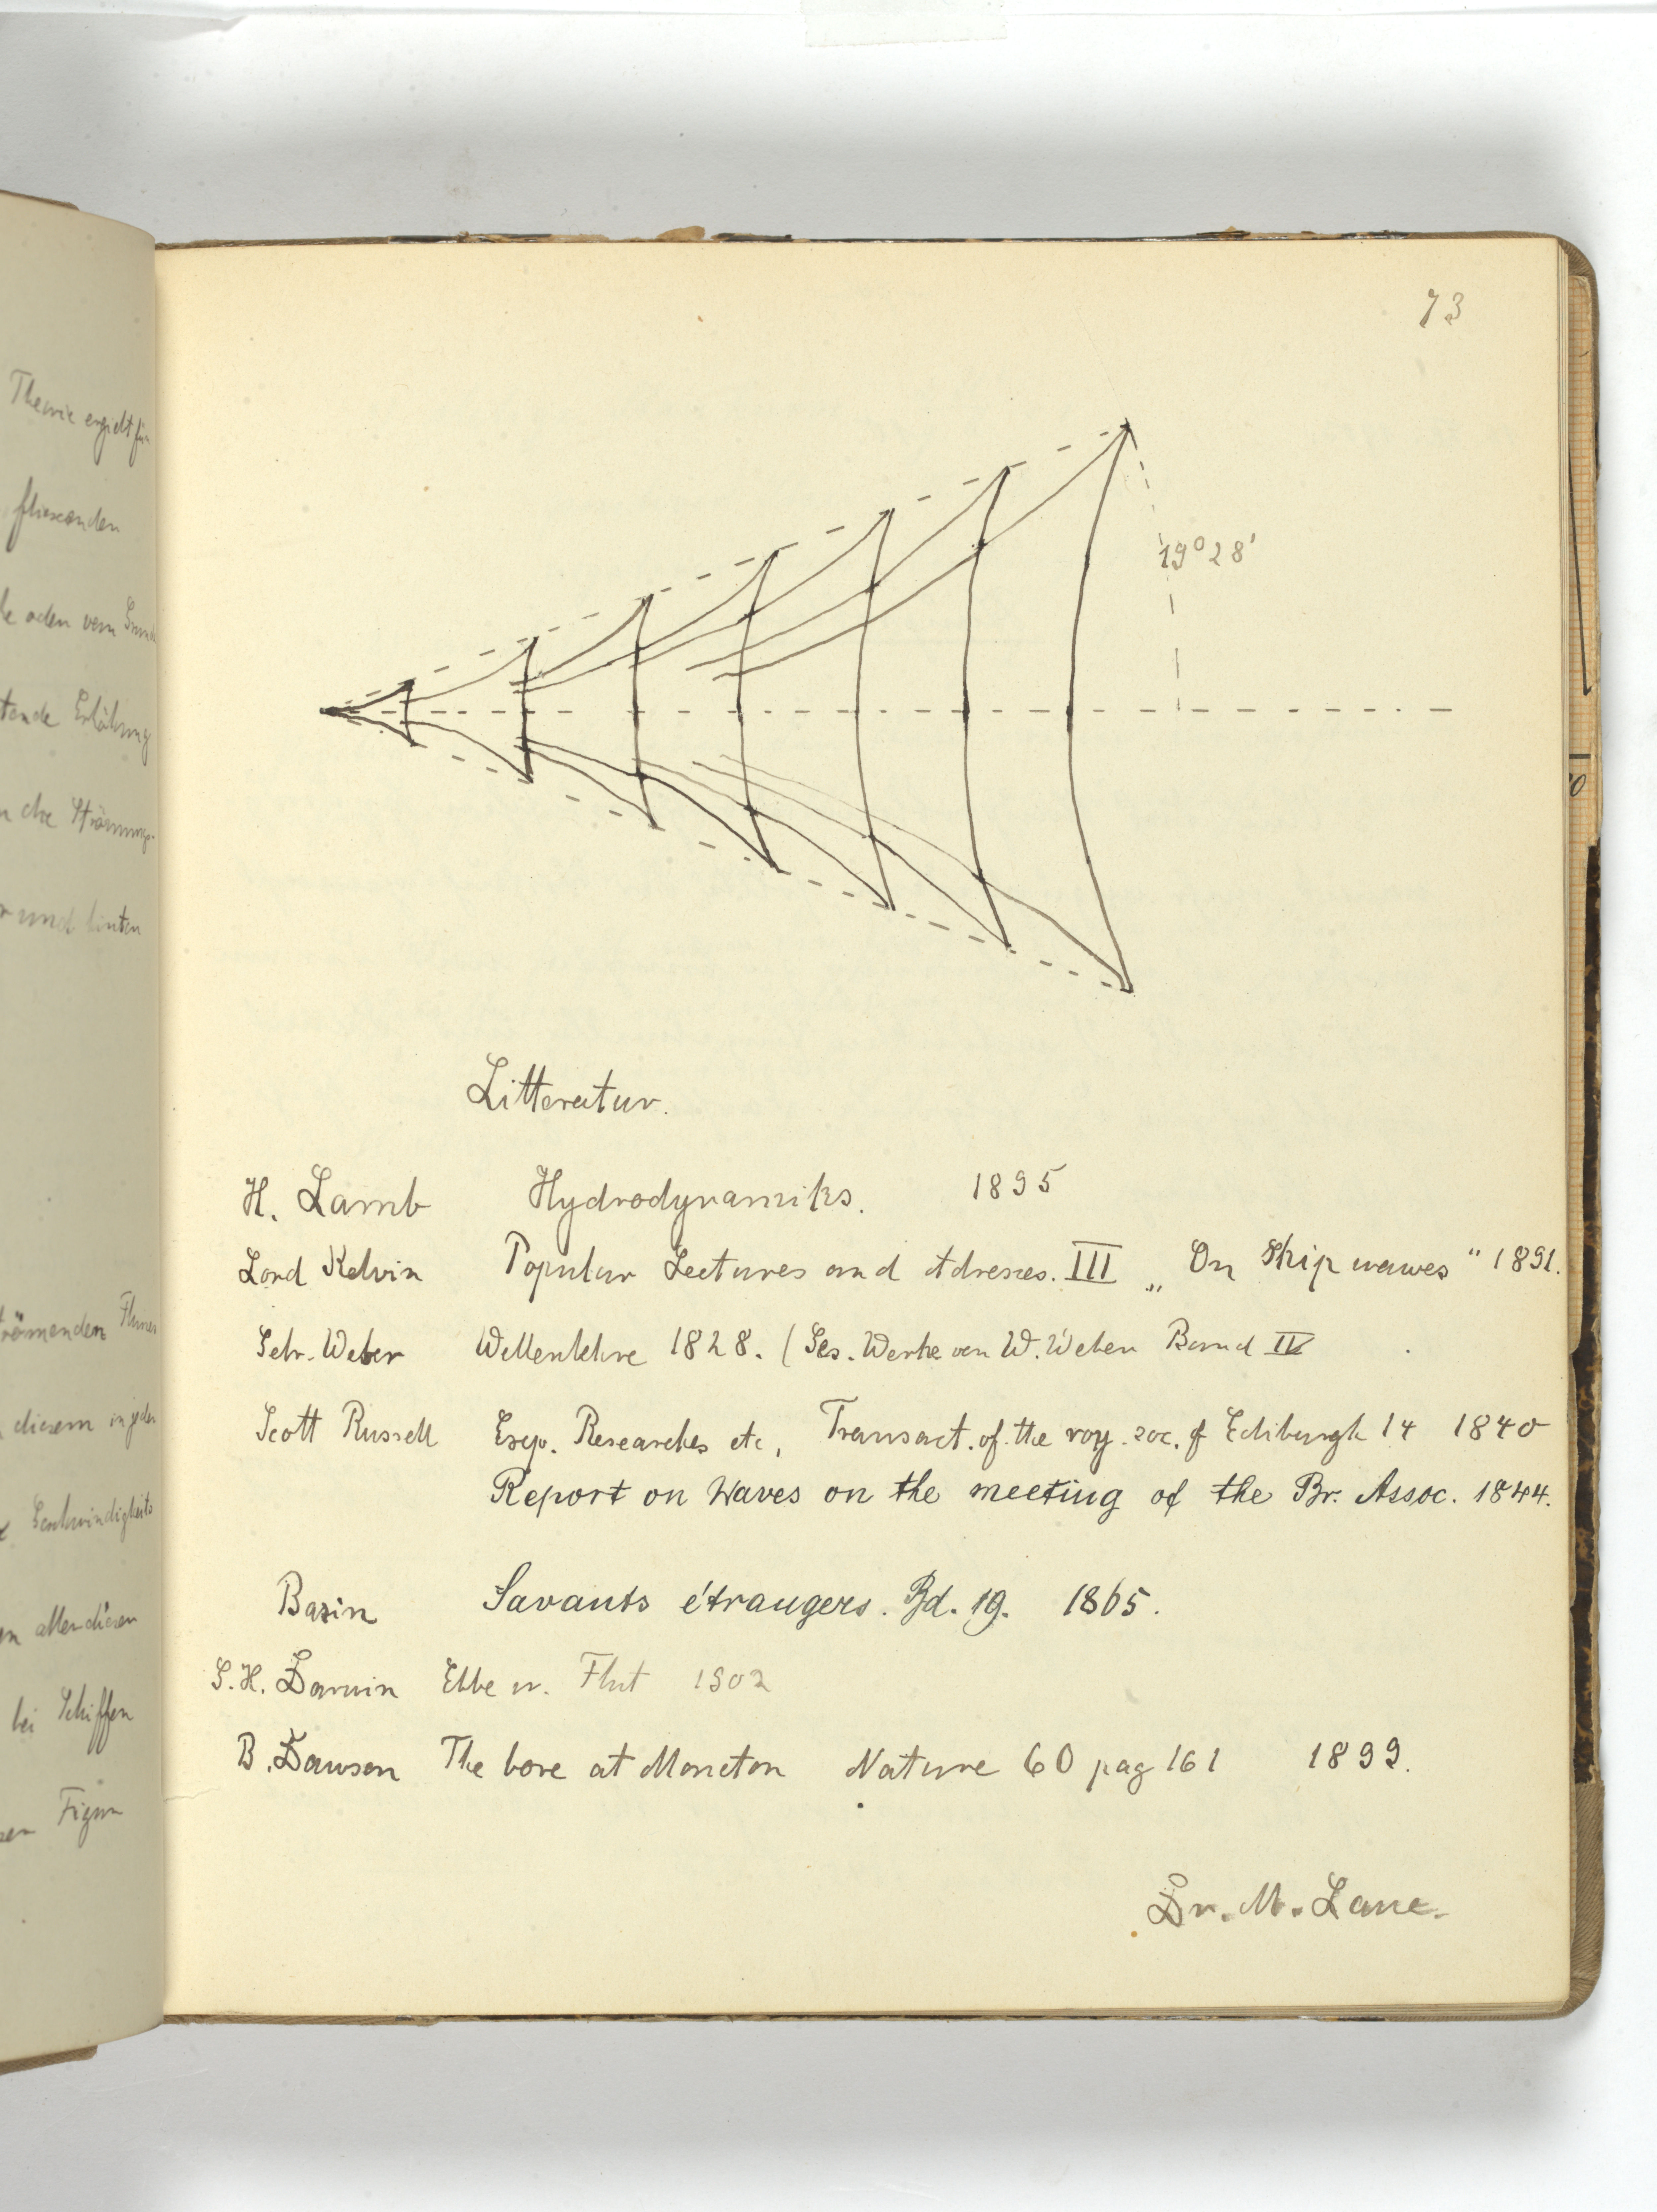 Theorie ergibt für
fliessenden
oder vom
Erhöhung
die Strömungs-
und hinten
strömenden
diesem in jeder
Geschwindigkeits
allen diesen
bei Schiffen
Figur
73
19° 28'
Litteratur.
H. Lamb Hydrodynamiks. 1895
Lord Kelvin Popular Lectures and Adresses. III „On Ship waves“ 1891.
Gebr. Weber Wellenlehre 1828. (Ges. Werke von W. Weber Band IV
Scott Russell Exp. Researches etc, Transact. of the roy. soc. of Ediburgh 14 1840
Report on Waves on the meeting of the Br. Assoc. 1844.
Bazin Savants étrangers. Bd. 19. 1865.
G. H. Darwin Ebbe u. Flut 1902
B. Dawson The bore at Moncton Nature 60 pag 161 1899.
Dr. M. Laue.